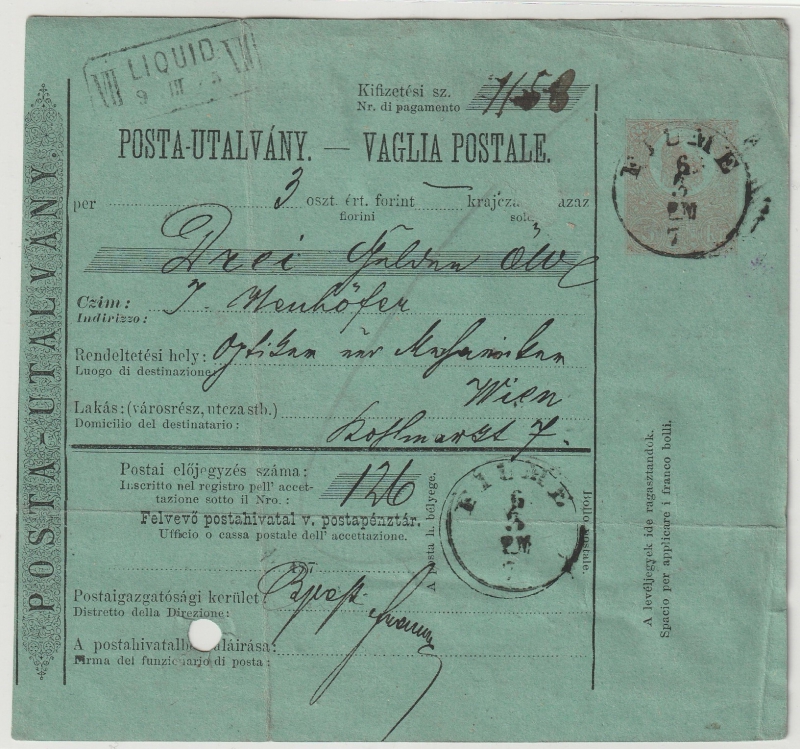 LIQUID
9 III
VII
VII
Kifizetési sz.
Nr. di pagamento
1158
POSTA-UTALVÁNY. — VAGLIA POSTALE.
per 3 oszt. ért. forint — krajczá azaz
fiorini soldi
Drei Gulden ÖW
Czím: J. Neuhöfer
Indirizzo:
Rendeltetési hely: Optiker und Mechaniker
Luogo di destinazione:
Wien
Lakás: (városrész, utcza stb.)
Domicilio del destinatario: Kohlmarkt 7.
Postai előjegyzés száma:
Inscritto nel registro pell' accet-
tazione sotto il Nro.: 126
Felvevő postahivatal v. postapénztár.
Ufficio o cassa postale dell' accettazione.
Postaigazgatósági kerület
Distretto della Direzione:
A postahivatalbe aláírása:
Firma del funzionario di posta:
A posta h. bélyege.
Bollo postale.
FIUME
6
3
PM
7
FIUME
6
3
PM
7
A levéljegyek ide ragasztandok.
Spacio per applicare i franco bolli.
POSTA-UTALVÁNY.